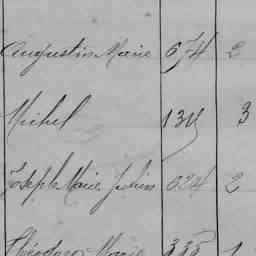 Augustin Marie 674 2
Michel 134 3
Joseph Marie Julien 624 2
Théodore Marie 335 1